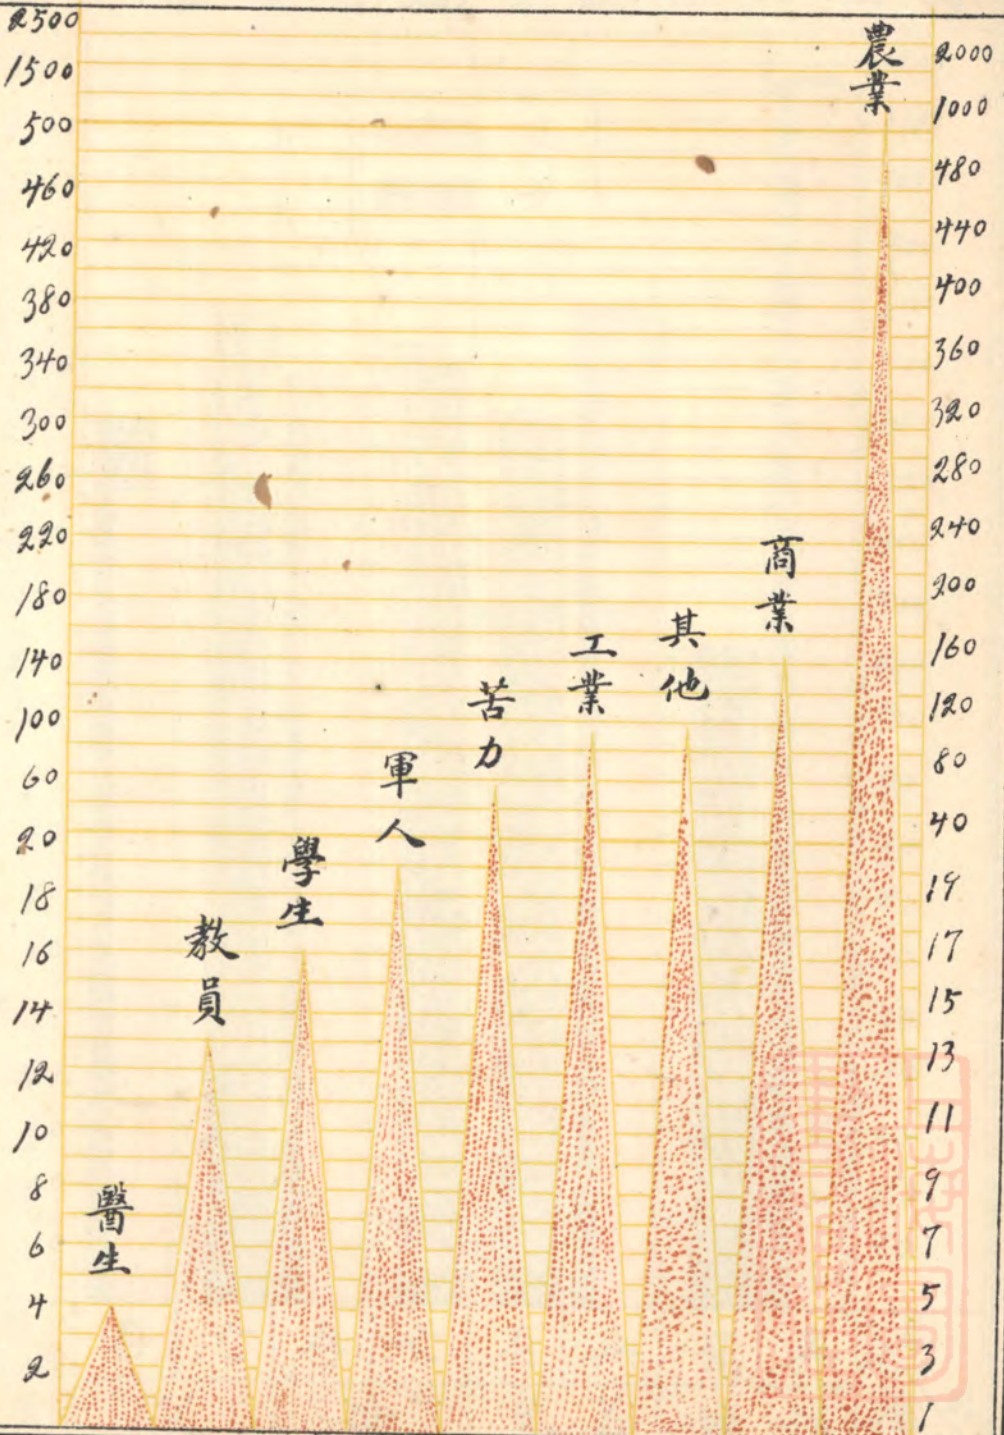 2500
1500
500
460
420
380
340
300
260
220
180
140
100
60
20
18
16
14
12
10
8
6
4
2
醫生
教員
學生
軍人
苦力
工業
其他
商業
農業
2000
1000
480
440
400
360
320
280
240
200
160
120
80
40
19
17
15
13
11
9
7
5
3
1